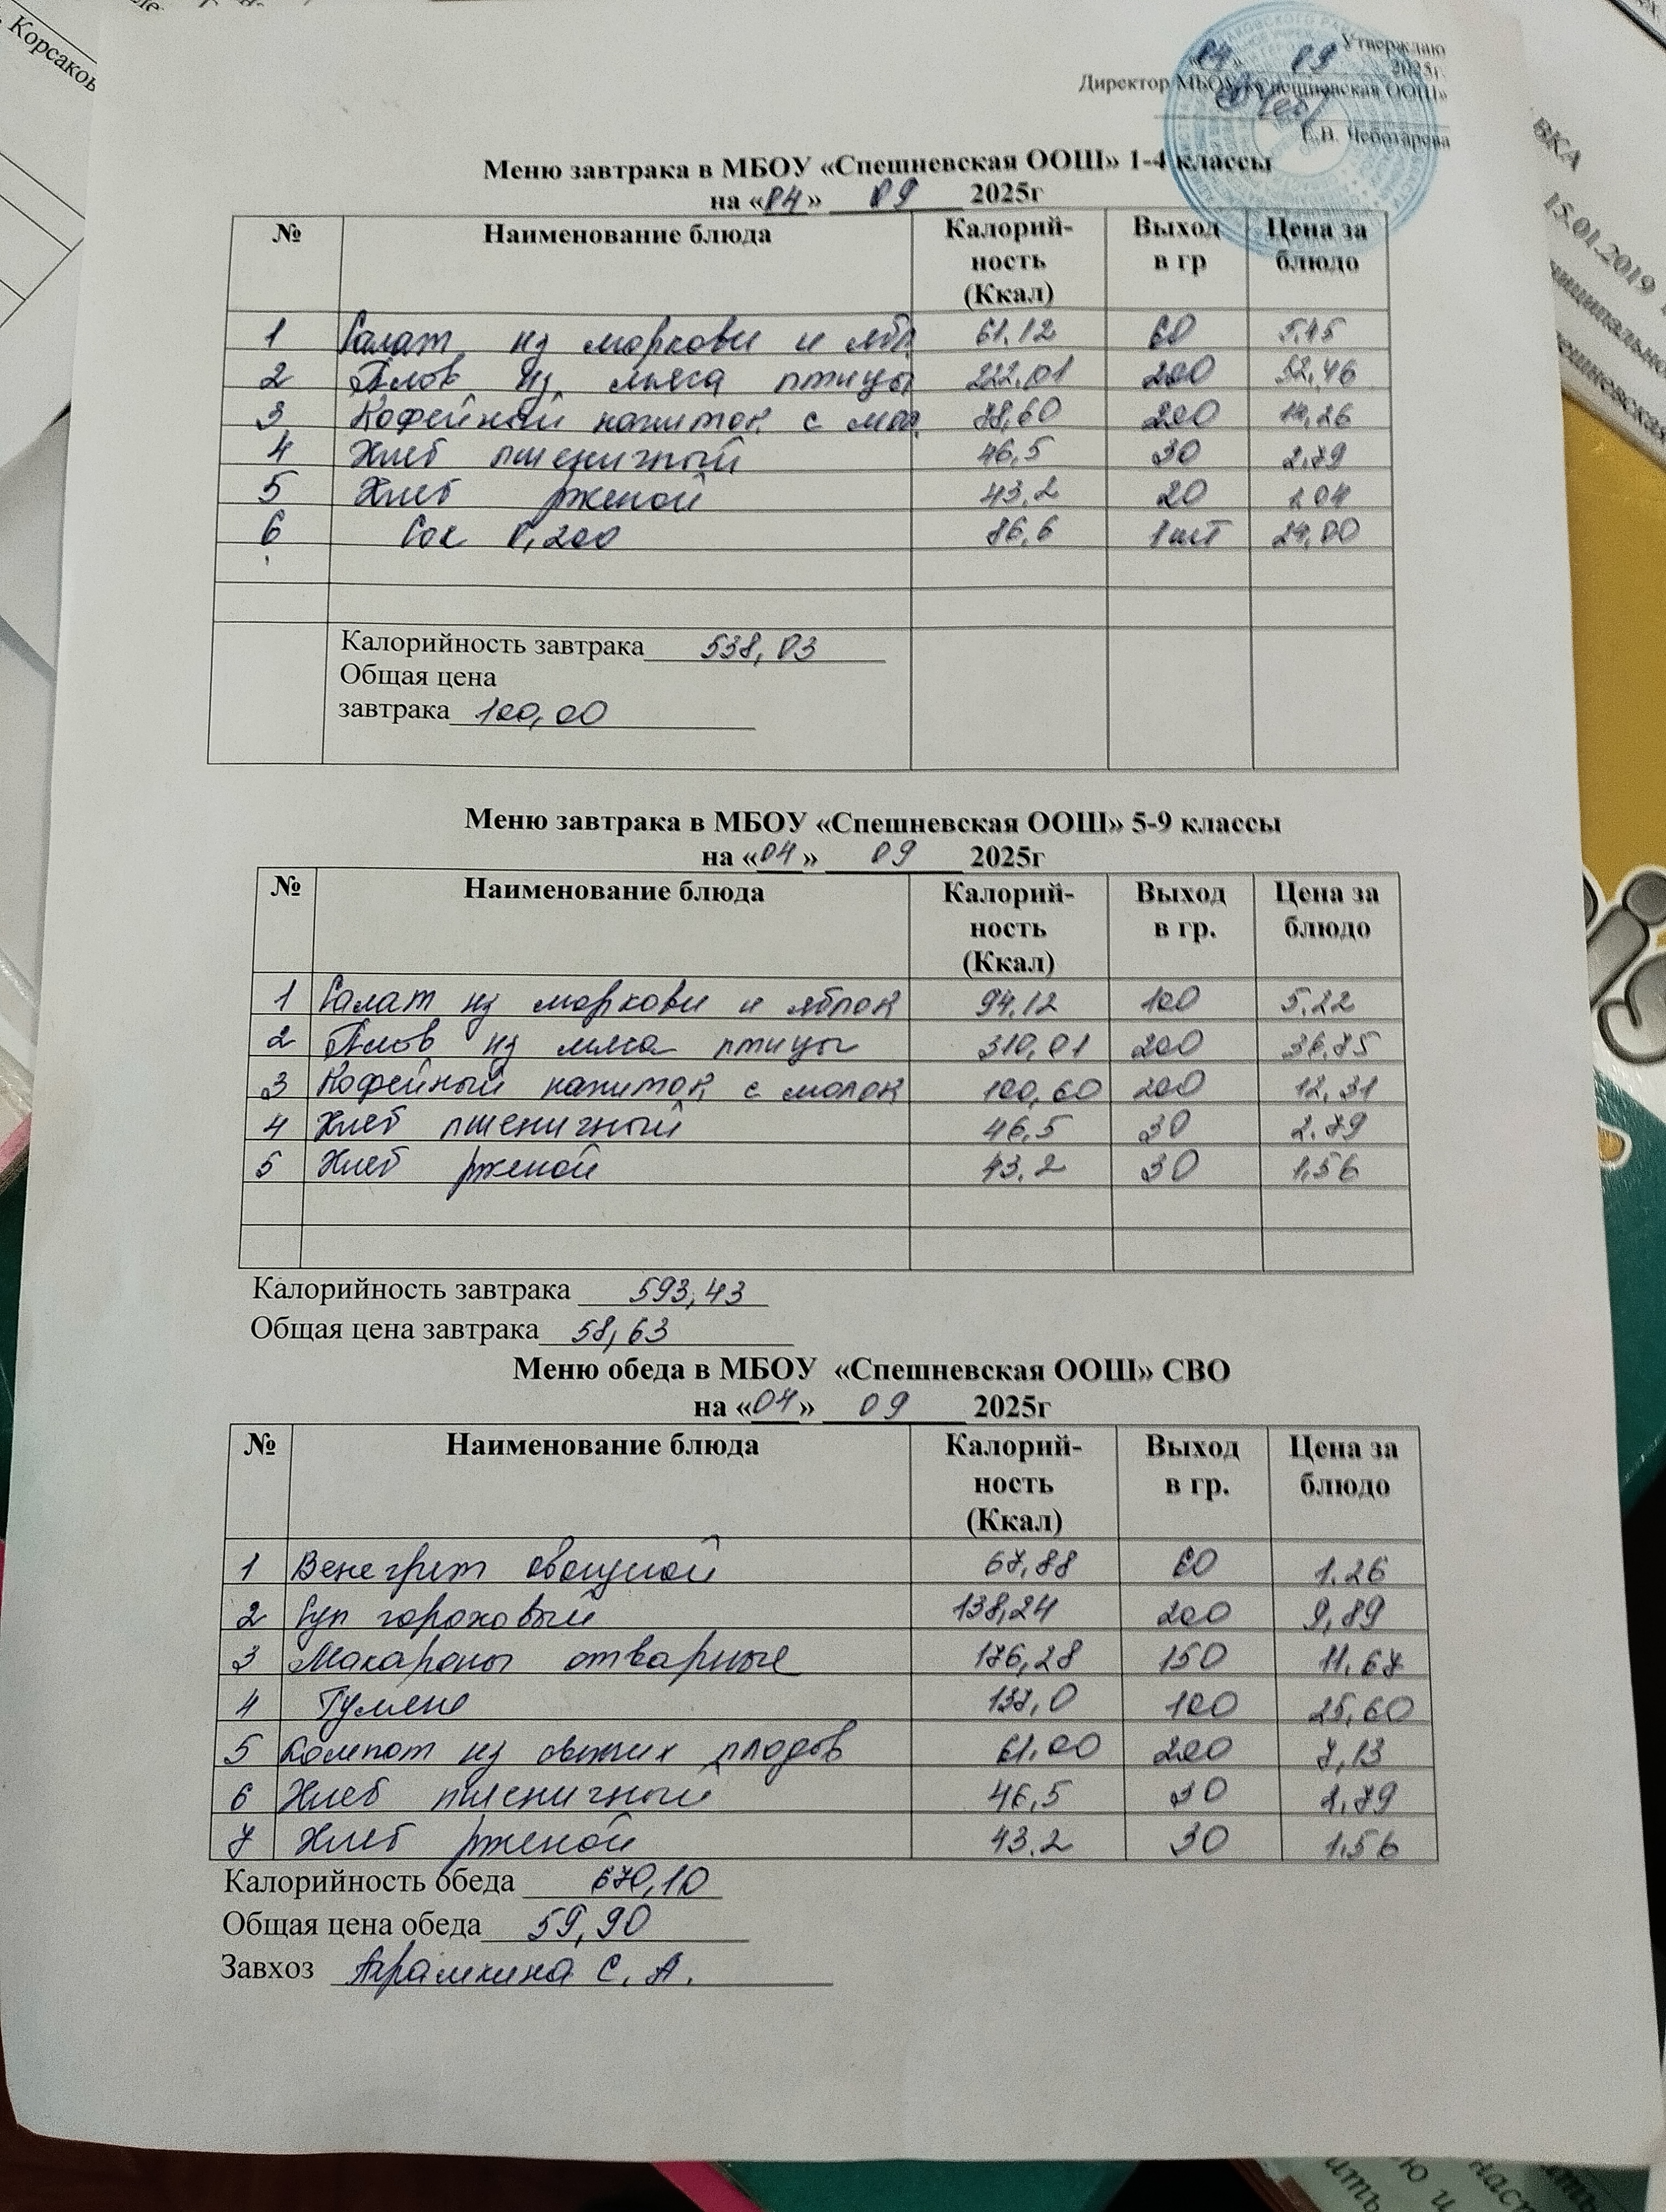 Корсаков
Утверждаю
«04» 09 2025г.
Директор МБОУ «Спешневская ООШ»
Е.В. Чеботарева
Меню завтрака в МБОУ «Спешневская ООШ» 1-4 классы
на «04» 09 2025г
№ Наименование блюда Калорий-ность (Ккал) Выход в гр Цена за блюдо
1 Салат из моркови и ябл 61,12 60 5,45
2 Плов из мяса птицы 222,01 200 52,46
3 Кофейный напиток с мол 78,60 200 14,26
4 Хлеб пшеничный 46,5 30 2,79
5 Хлеб ржаной 43,2 20 1 04
6 Сок 0,200 86,6 1шт 24,00
Калорийность завтрака 538,03
Общая цена
завтрака 100,00
Меню завтрака в МБОУ «Спешневская ООШ» 5-9 классы
на «04» 09 2025г
№ Наименование блюда Калорий-ность (Ккал) Выход в гр. Цена за блюдо
1 Салат из моркови и яблок 94,12 100 5,22
2 Плов из мяса птицы 310,01 200 36,75
3 Кофейный напиток с молок 100,60 200 12,31
4 Хлеб пшеничный 46,5 30 2,79
5 Хлеб ржаной 43,2 30 1,56
Калорийность завтрака 593,43
Общая цена завтрака 58,63
Меню обеда в МБОУ «Спешневская ООШ» СВО
на «04» 09 2025г
№ Наименование блюда Калорий-ность (Ккал) Выход в гр. Цена за блюдо
1 Венегрет овощной 67,88 60 1,26
2 Суп гороховый 138,24 200 9,89
3 Макароны отварные 176,28 150 11,67
4 Гуляш 137,0 100 25,60
5 Компот из свежих плодов 61,00 200 7,13
6 Хлеб пшеничный 46,5 30 2,79
7 Хлеб ржаной 43,2 30 1,56
Калорийность обеда 670,10
Общая цена обеда 59,90
Завхоз С. А.
15.01.2019